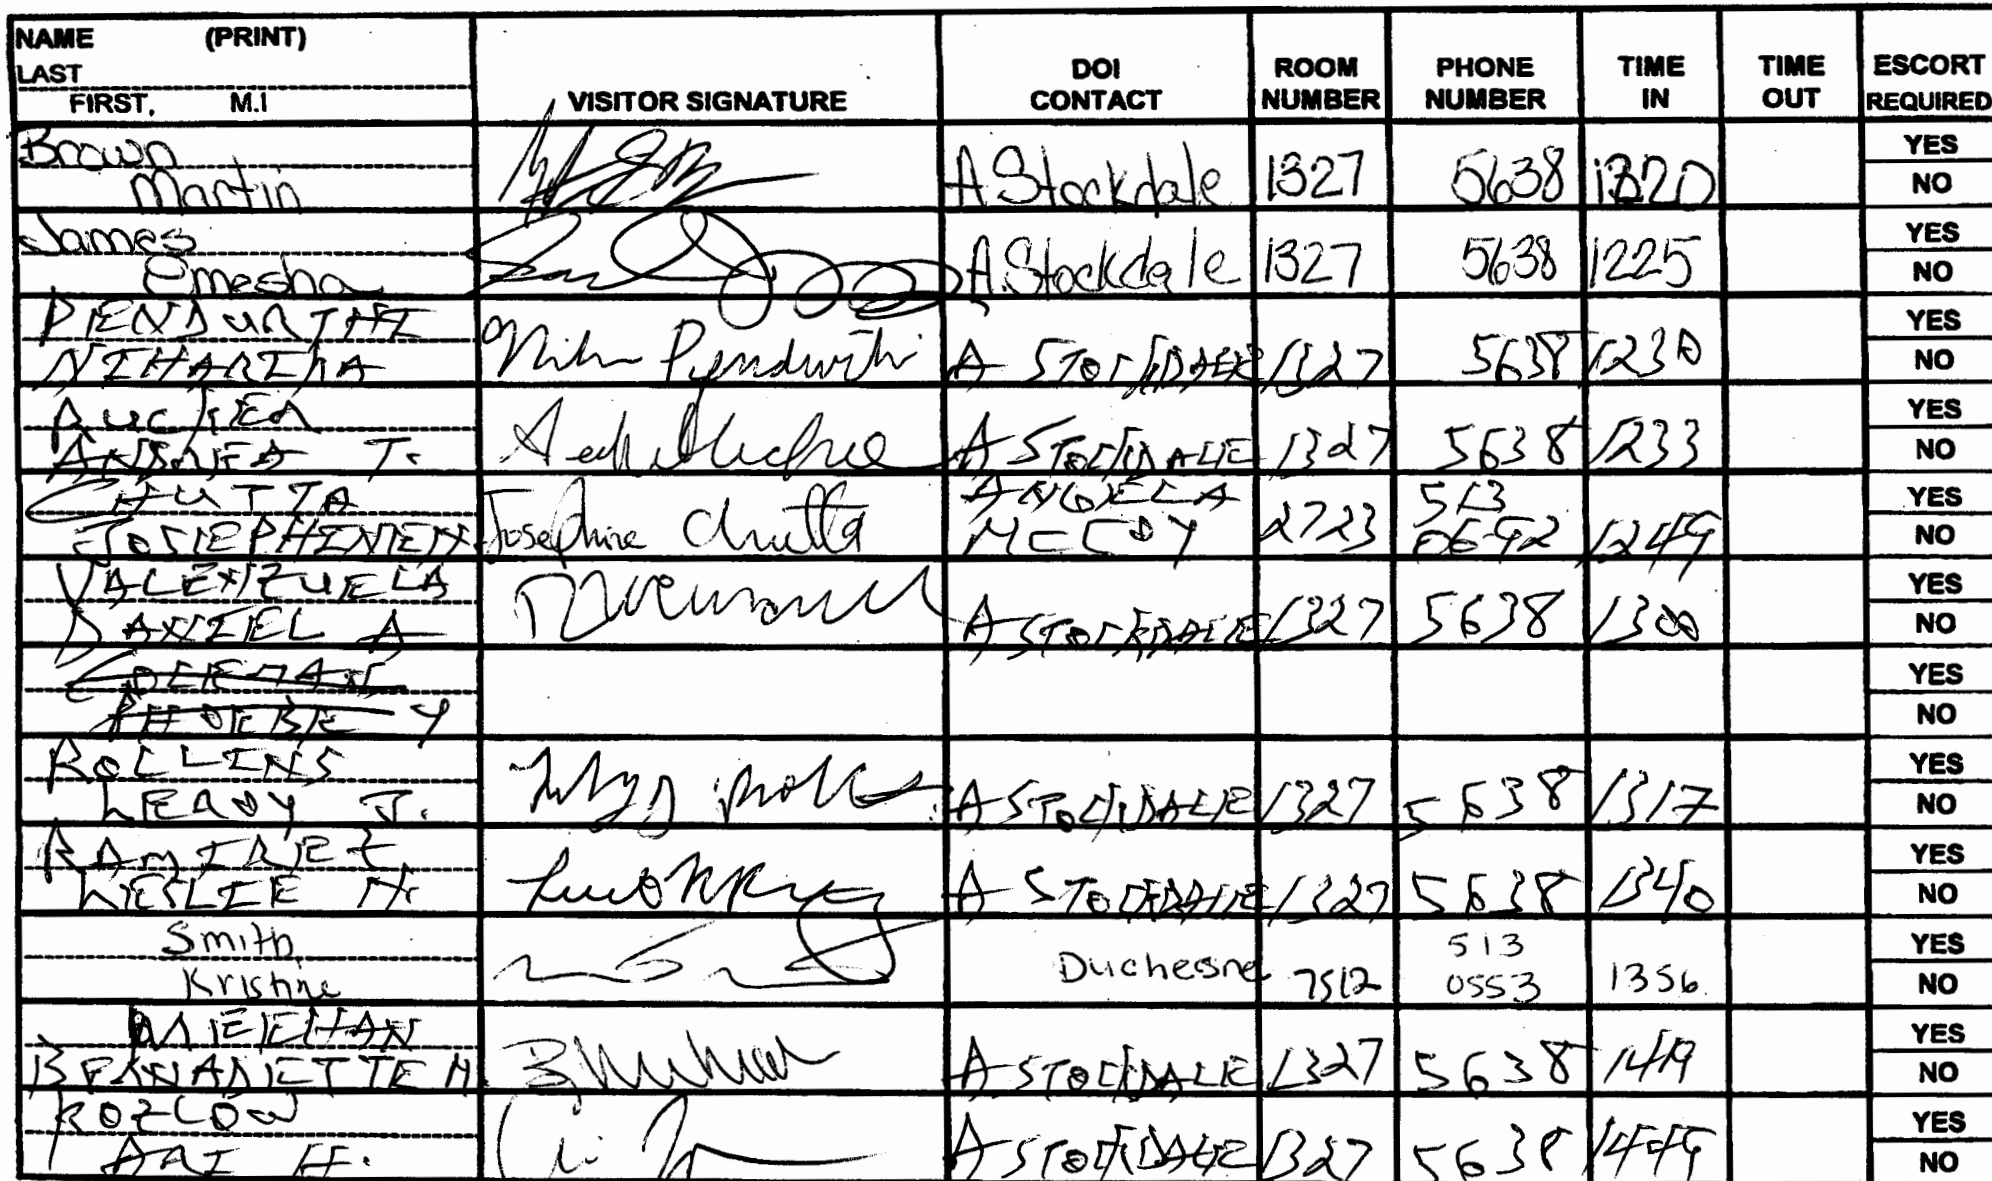 NAME (PRINT)
LAST
FIRST, M.I
VISITOR SIGNATURE
DOI CONTACT
ROOM NUMBER
PHONE NUMBER
TIME IN
TIME OUT
ESCORT REQUIRED
Brown
Martin
A Stockdale 1327 5638 1320
YES
NO
James
Emesha
A. Stockdale 1327 5638 1225
YES
NO
PENDURTHI
NIHARIKA
A STOCKDALE 1327 5638 1230
YES
NO
RUCKER
ANDREA T.
A STOCKDALE 1327 5638 1233
YES
NO
CHUTTA
JOSEPHINE N
Josephine Chutta
ANGELA
MCCOY
2723
513
0692
1249
YES
NO
VALENZUELA
DANIEL A
A STOCKDALE 1327 5638 1300
YES
NO
COLEMAN
PHOEBE Y
YES
NO
ROLLINS
LEROY J.
A STOCKDALE 1327 5638 1317
YES
NO
RAMIREZ
LESLIE N.
A STOCKDALE 1327 5638 1340
YES
NO
Smith
Kristine
Duchesne 7512
513
0553
1356
YES
NO
MEEHAN
BERNADETTE M.
A STOCKDALE 1327 5638 1419
YES
NO
KOZLOW
ARI H.
A STOCKDALE 1327 5638 1449
YES
NO